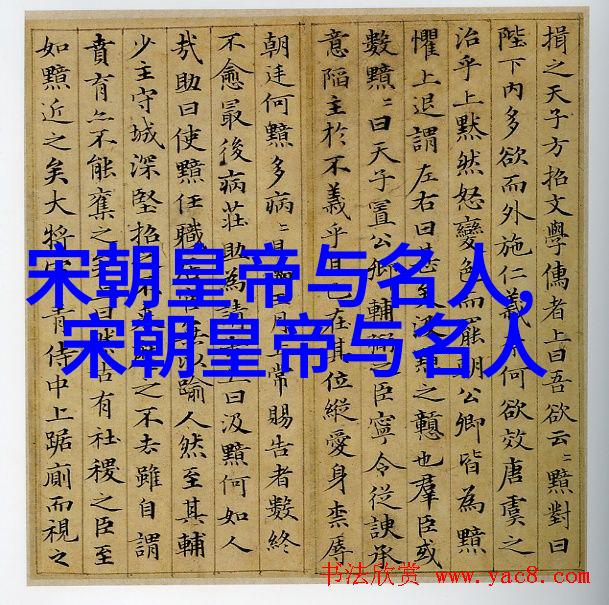 揖之天子方招文學儒者上曰吾欲云〻黯對曰
陛下內多欲而外施仁義何欲效唐虞之
治乎上黙然怒變色而罷朝公卿皆為黯
懼上退謂左右曰甚汲黯之戇也羣臣或
數黯〻曰天子置公卿輔弼之臣寧令從諛承
意陷主於不義乎且已在其位縱愛身柰辱
朝廷何黯多病〻且月上常賜告者數終
不愈最後病莊助為請上曰汲黯何如人
哉助曰使黯任職無以踰人然至其輔
少主守城深堅招之不來之不去雖自謂
賁育亦不能奪之矣曰古有社稷之臣至
如黯近之矣大將軍青侍中上踞廁而視之
宋朝皇帝与名人,
宋朝皇帝与名人
书法欣赏 www.yac8.com